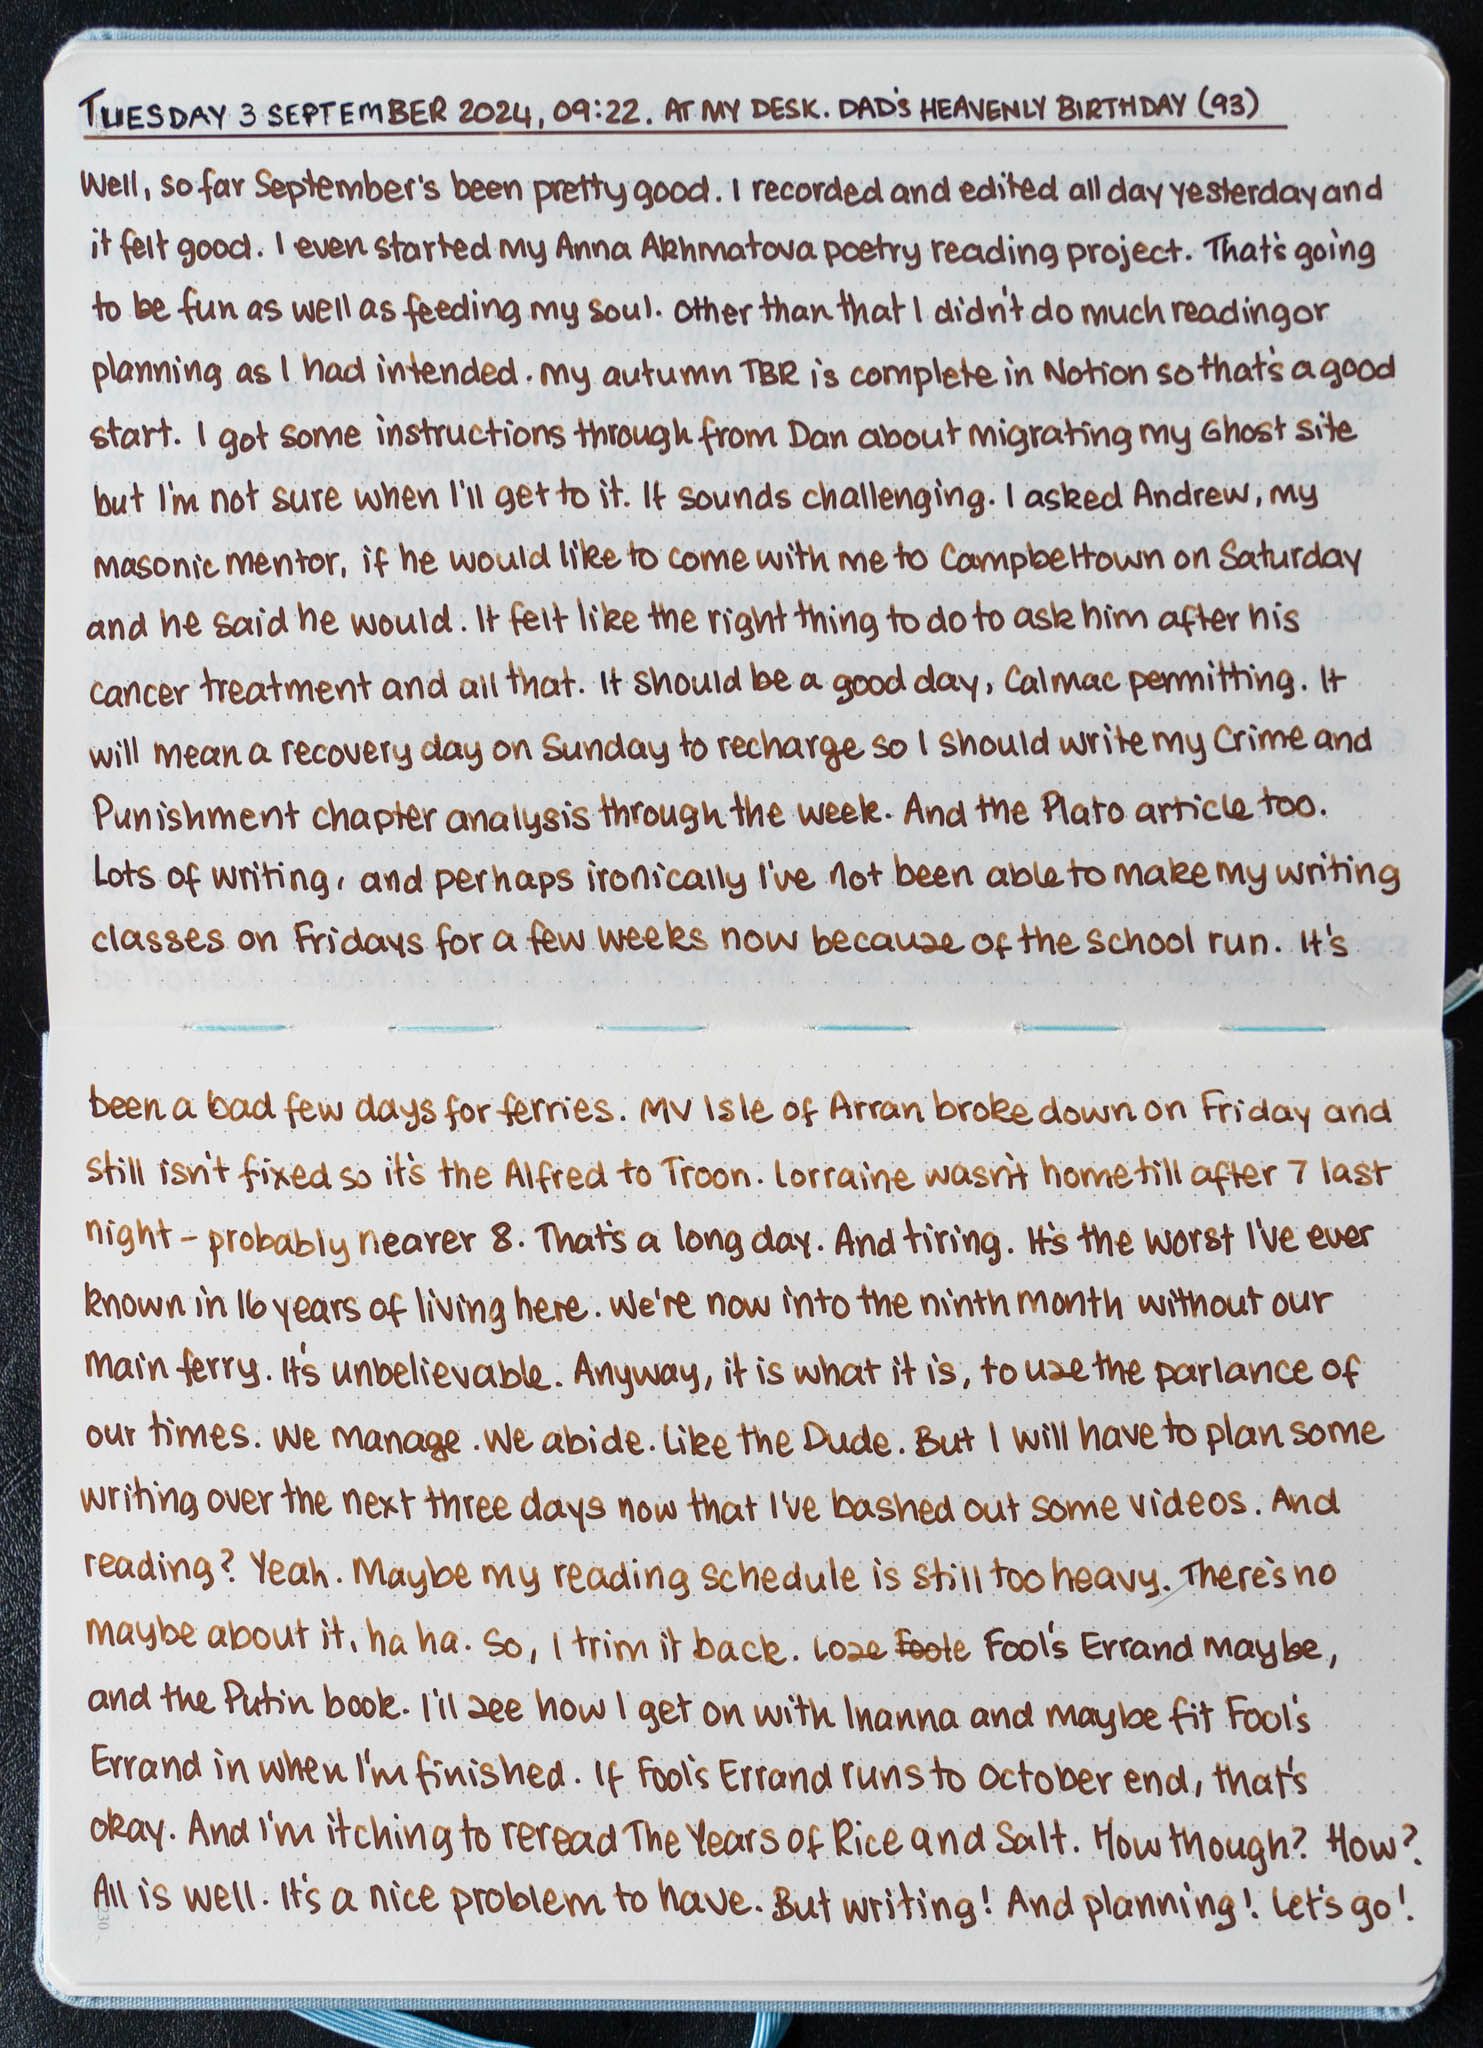 TUESDAY 3 SEPTEMBER 2024, 09:22. AT MY DESK. DAD'S HEAVENLY BIRTHDAY (93)
Well, so far September's been pretty good. I recorded and edited all day yesterday and
it felt good. I even started my Anna Akhmatova poetry reading project. That's going
to be fun as well as feeding my soul. Other than that I didn't do much reading or
planning as I had intended. My autumn TBR is complete in Notion so that's a good
start. I got some instructions through from Dan about migrating my Ghost site
but I'm not sure when I'll get to it. It sounds challenging. I asked Andrew, my
masonic mentor, if he would like to come with me to Campbeltown on Saturday
and he said he would. It felt like the right thing to do to ask him after his
cancer treatment and all that. It should be a good day, Calmac permitting. It
will mean a recovery day on Sunday to recharge so I should write my Crime and
Punishment chapter analysis through the week. And the Plato article too.
Lots of writing, and perhaps ironically I've not been able to make my writing
classes on Fridays for a few weeks now because of the school run. It's
been a bad few days for ferries. MV Isle of Arran broke down on Friday and
still isn't fixed so it's the Alfred to Troon. Lorraine wasn't home till after 7 last
night – probably nearer 8. That's a long day. And tiring. It's the worst I've ever
known in 16 years of living here. We're now into the ninth month without our
main ferry. It's unbelievable. Anyway, it is what it is, to use the parlance of
our times. We manage. We abide. Like the Dude. But I will have to plan some
writing over the next three days now that I've bashed out some videos. And
reading? Yeah. Maybe my reading schedule is still too heavy. There's no
maybe about it, ha ha. So, I trim it back. Lose Foole Fool's Errand maybe,
and the Putin book. I'll see how I get on with Inanna and maybe fit Fool's
Errand in when I'm finished. If Fool's Errand runs to October end, that's
okay. And I'm itching to reread The Years of Rice and Salt. How though? How?
All is well. It's a nice problem to have. But writing! And planning! Let's go!
230